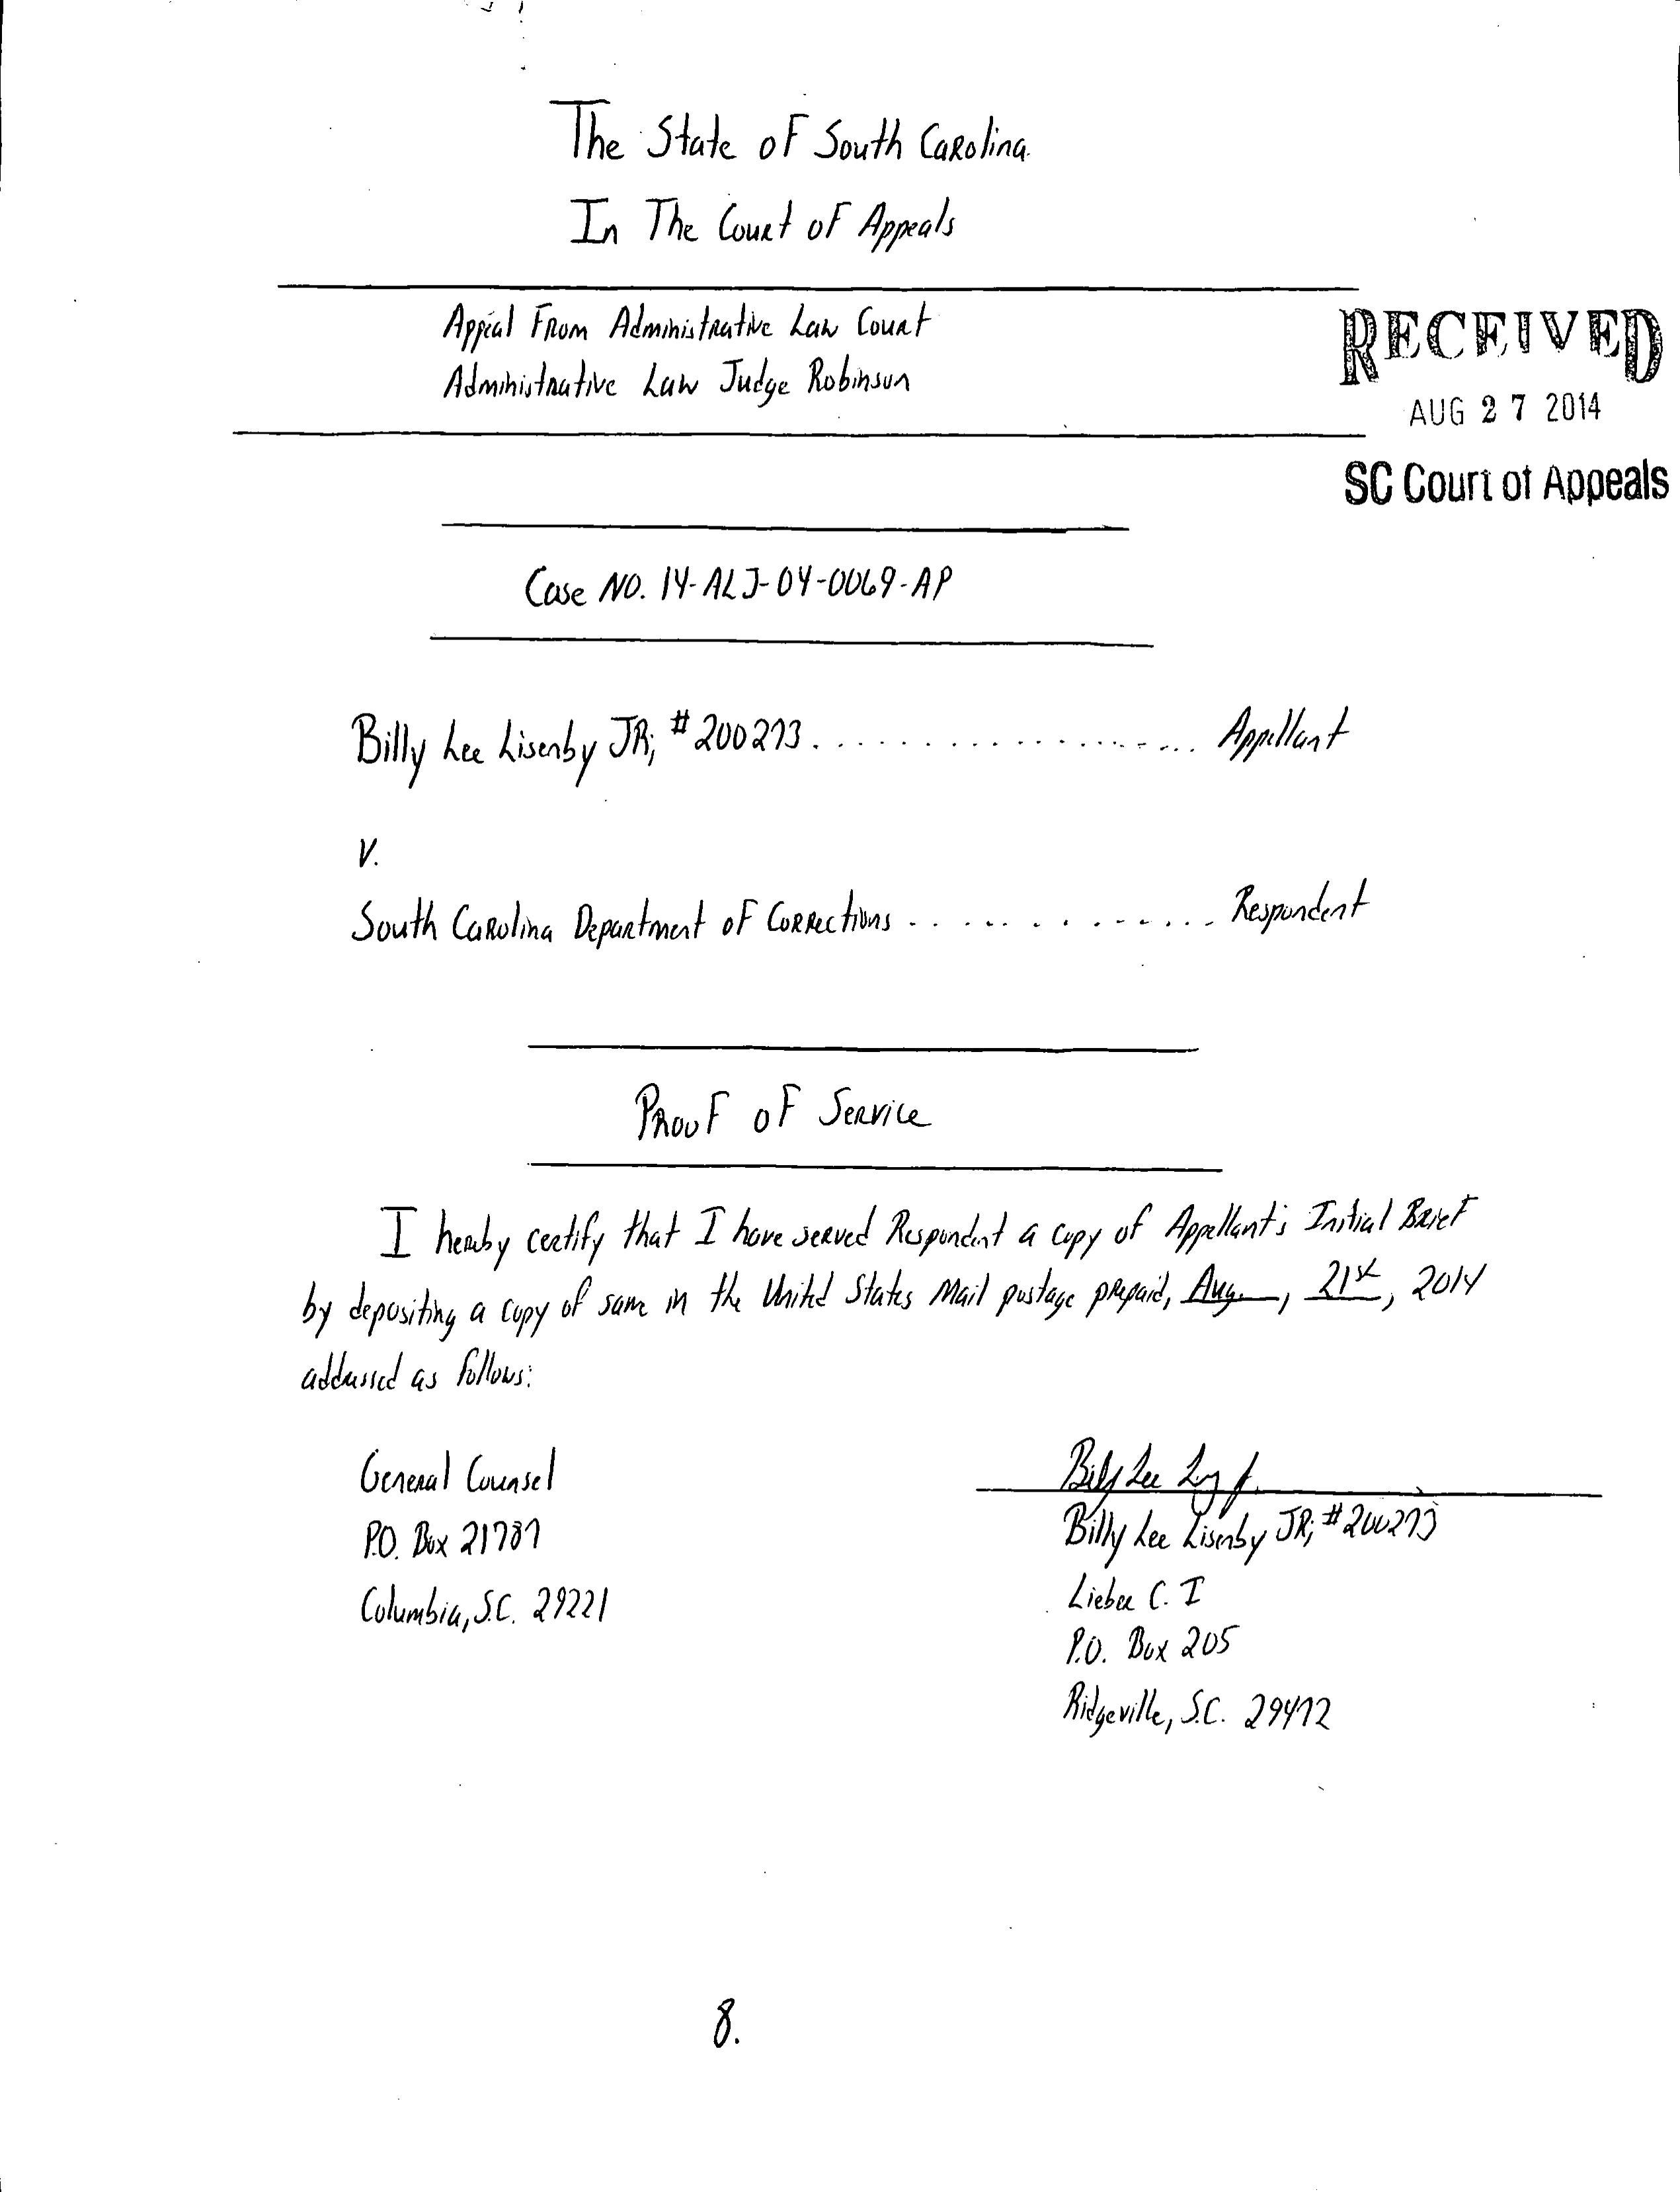 The State of South Carolina
In The Court of Appeals
Appeal From Administrative Law Court
Administrative Law Judge Robinson
RECEIVED
AUG 27 2014
SC Court of Appeals
Case NO. 14-ALJ-04-0069-AP
Billy Lee Lisenby JR; #200273.................... Appellant
V.
South Carolina Department of Corrections .............. Respondent
Proof of Service
I hereby certify that I have served Respondent a copy of Appellant's Initial Brief
by depositing a copy of same in the United States Mail postage prepaid, Aug., 21st, 2014
addressed as follows:
General Counsel
P.O. Box 21787
Columbia, S.C. 29221
Billy Lee
Billy Lee Lisenby JR; #200273
Lieber C. I
P.O. Box 205
Ridgeville, S.C. 29472
8.